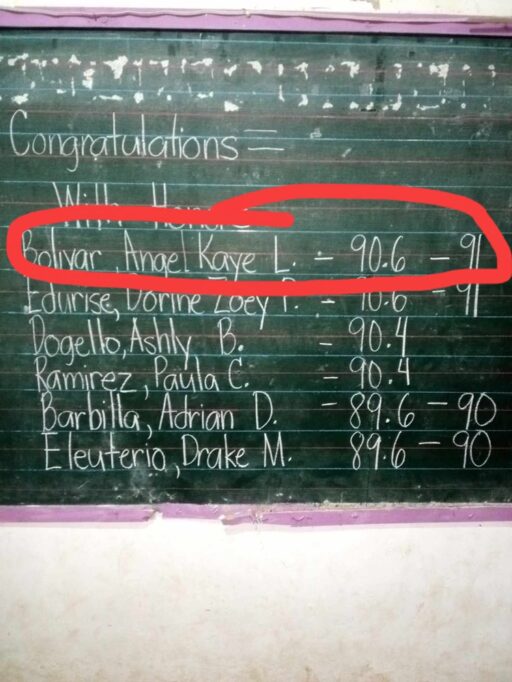 Congratulations =
With Honors
Bolivar, Angel Kaye L. - 90.6 - 91
Edurise, Dorine Zoey P. - 90.6 - 91
Dogello, Ashly B. - 90.4
Ramirez, Paula C. - 90.4
Barbilla, Adrian D. - 89.6 - 90
Eleuterio, Drake M. 89.6 - 90